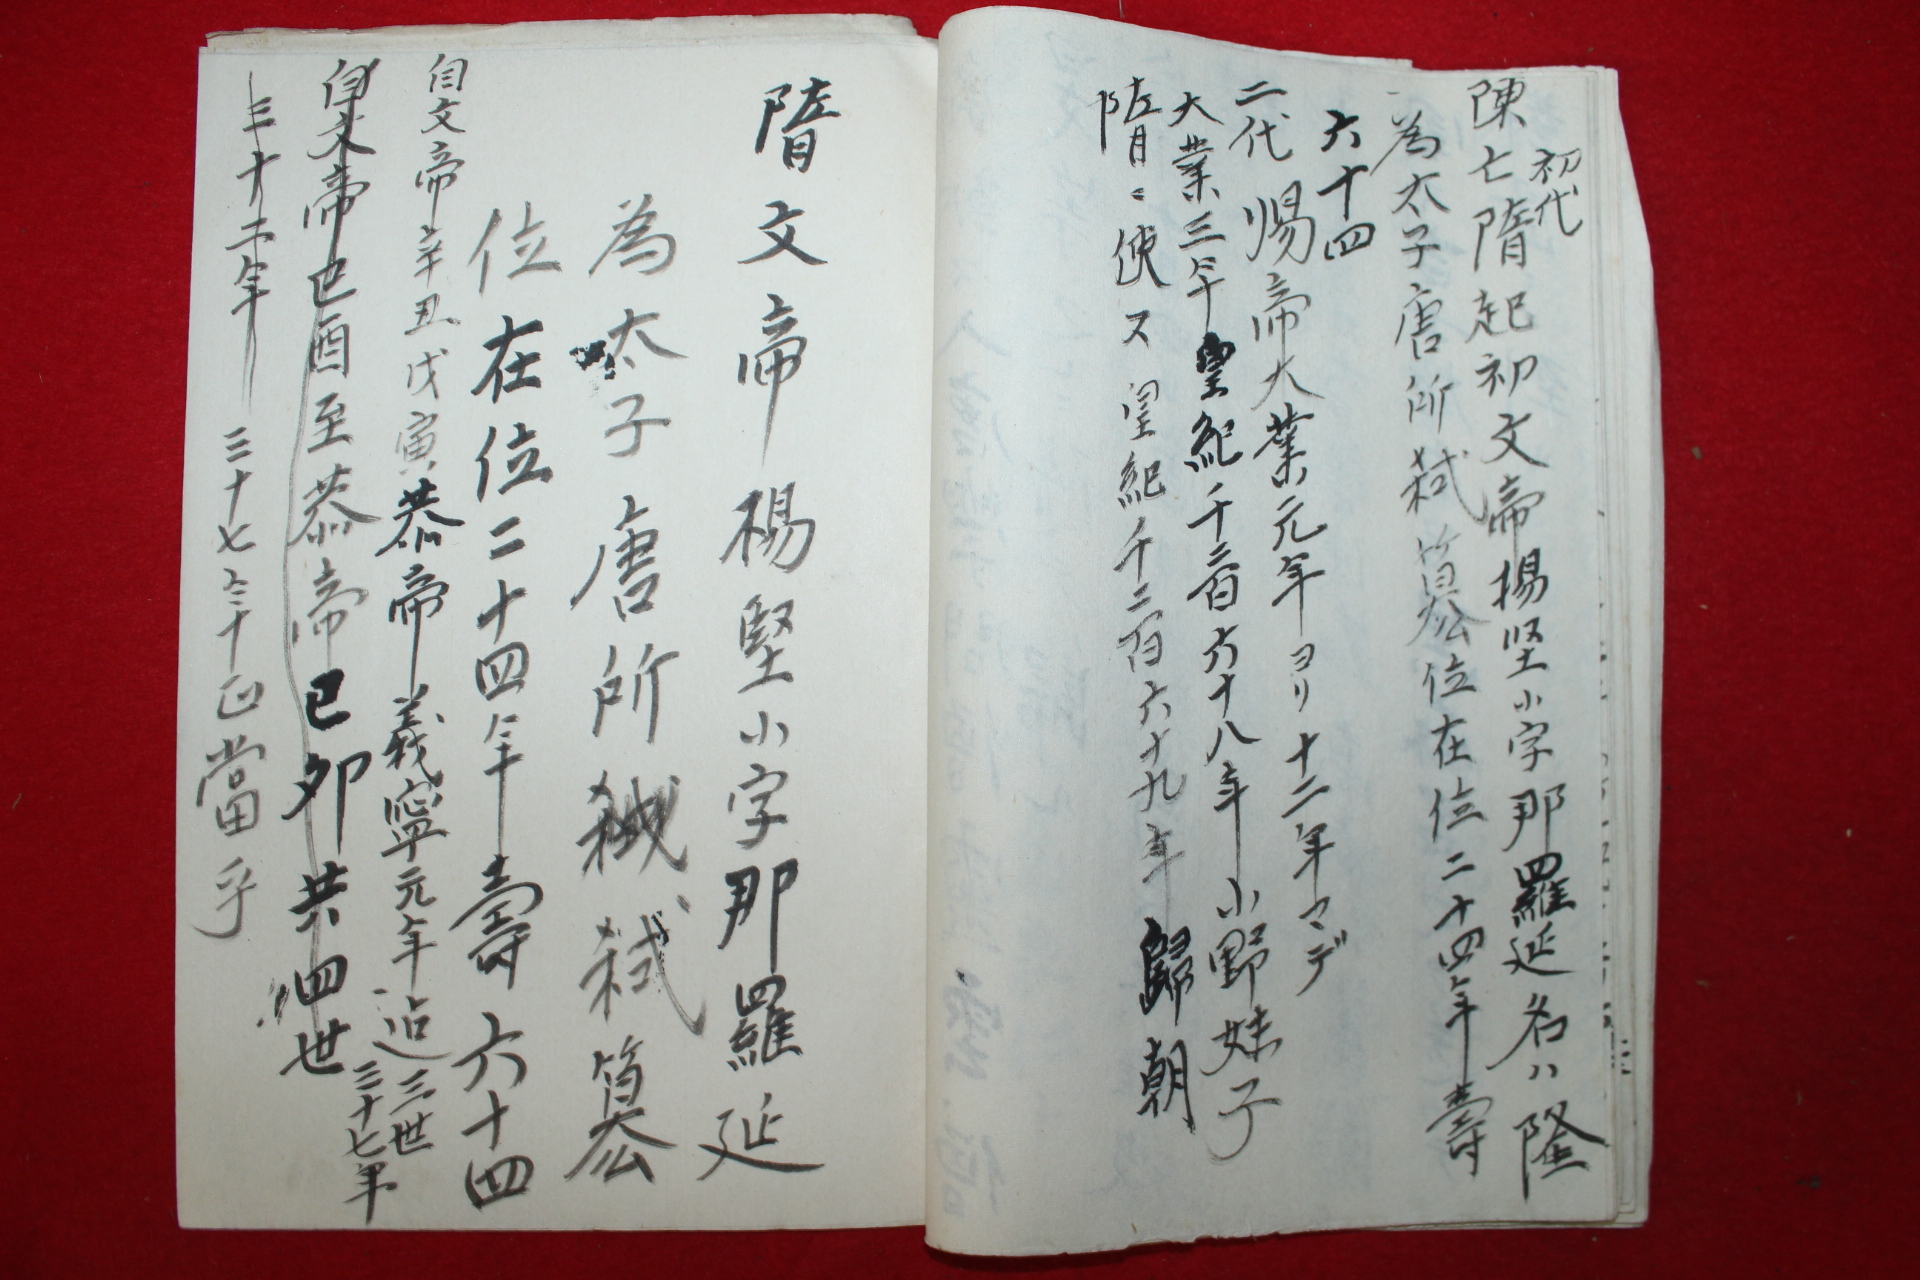 初代
陳亡隋起初文帝楊坚小字那羅延名ハ隆
為太子唐所弑篡位在位二十四年壽
六十四
二代 煬帝大業元年ヨリ十二年マデ
大業三年皇紀千二百六十八年小野妹子
隋ニ使ス皇紀千二百六十九年歸朝
隋文帝楊堅小字那羅延
為太子唐所弑篡
位在位二十四年壽六十四
自文帝辛丑戊寅恭帝義寧元年迠三世
三十七年
自文帝已酉至恭帝已卯共四世
三十二年 三十七六三十正當乎